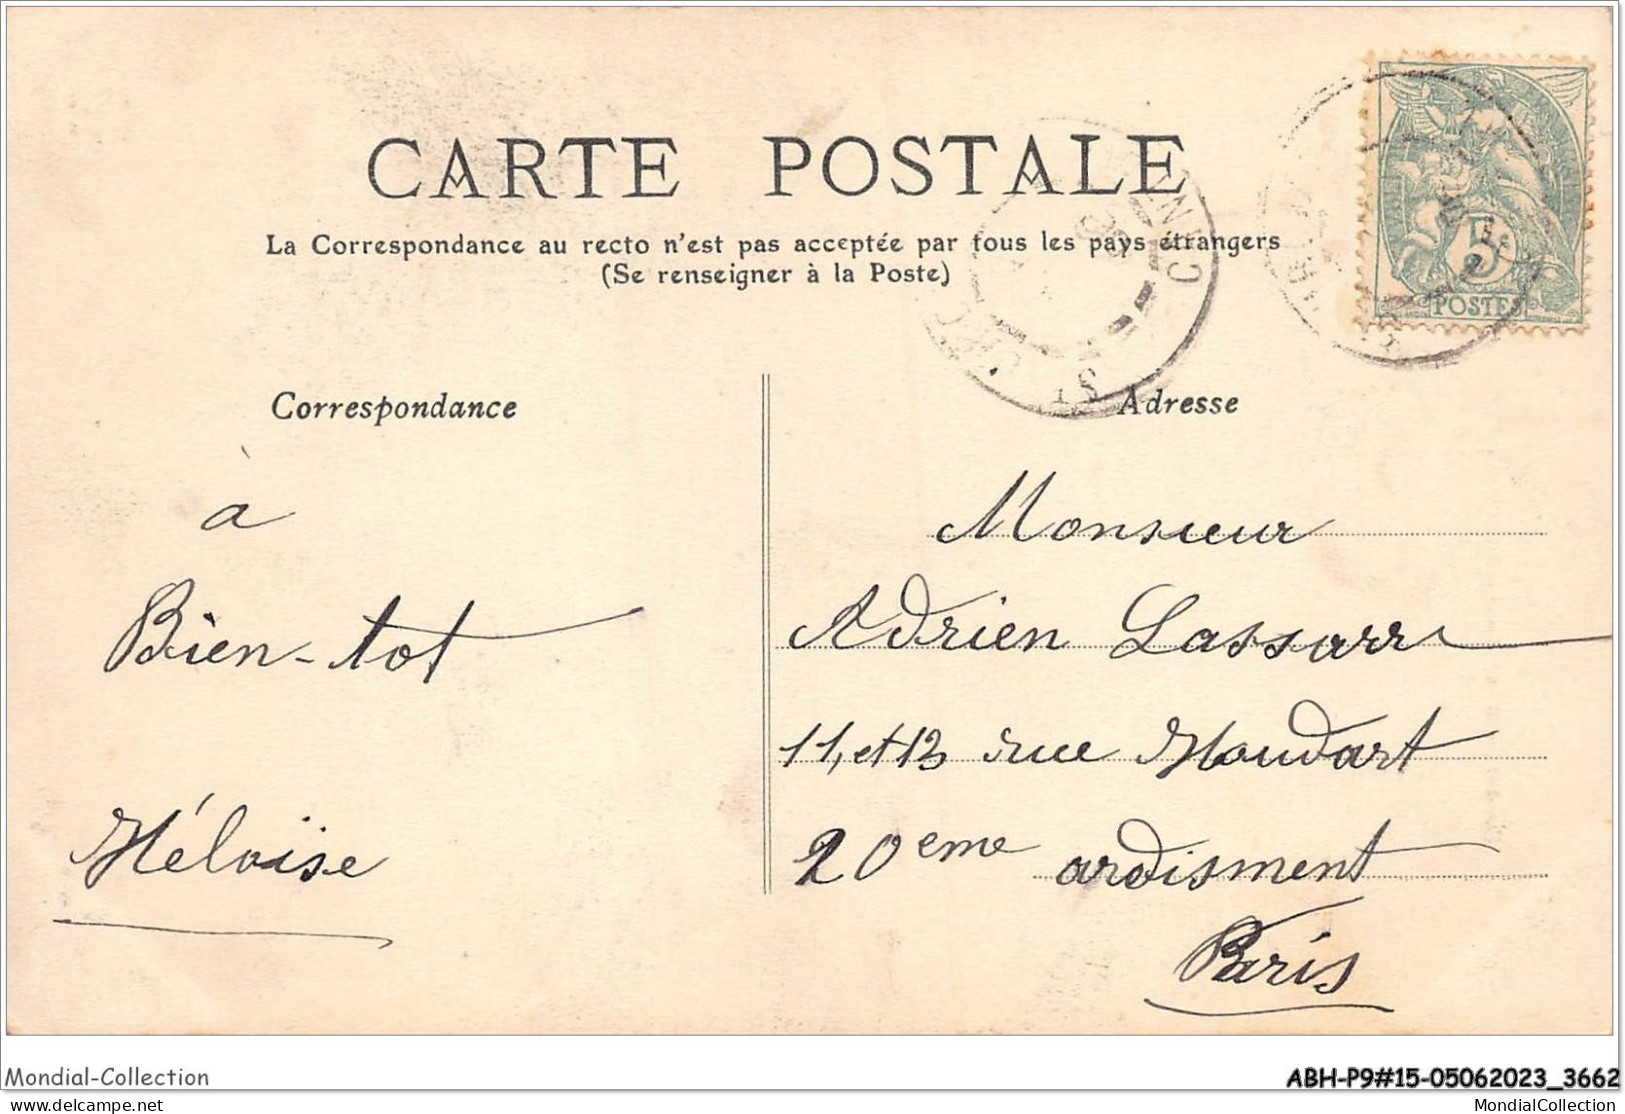 CARTE POSTALE
La Correspondance au recto n'est pas acceptée par tous les pays étrangers
(Se renseigner à la Poste)
Correspondance
à
Bien-tot
Héloïse
Adresse
Monsieur
Adrien Lassarre
11, et 13 rue Houdart
20eme ardisment
Paris
5c
POSTES
Mondial-Collection
ABH-P9#15-05062023_3662
mondial-collection.delcampe.net
MondialCollection